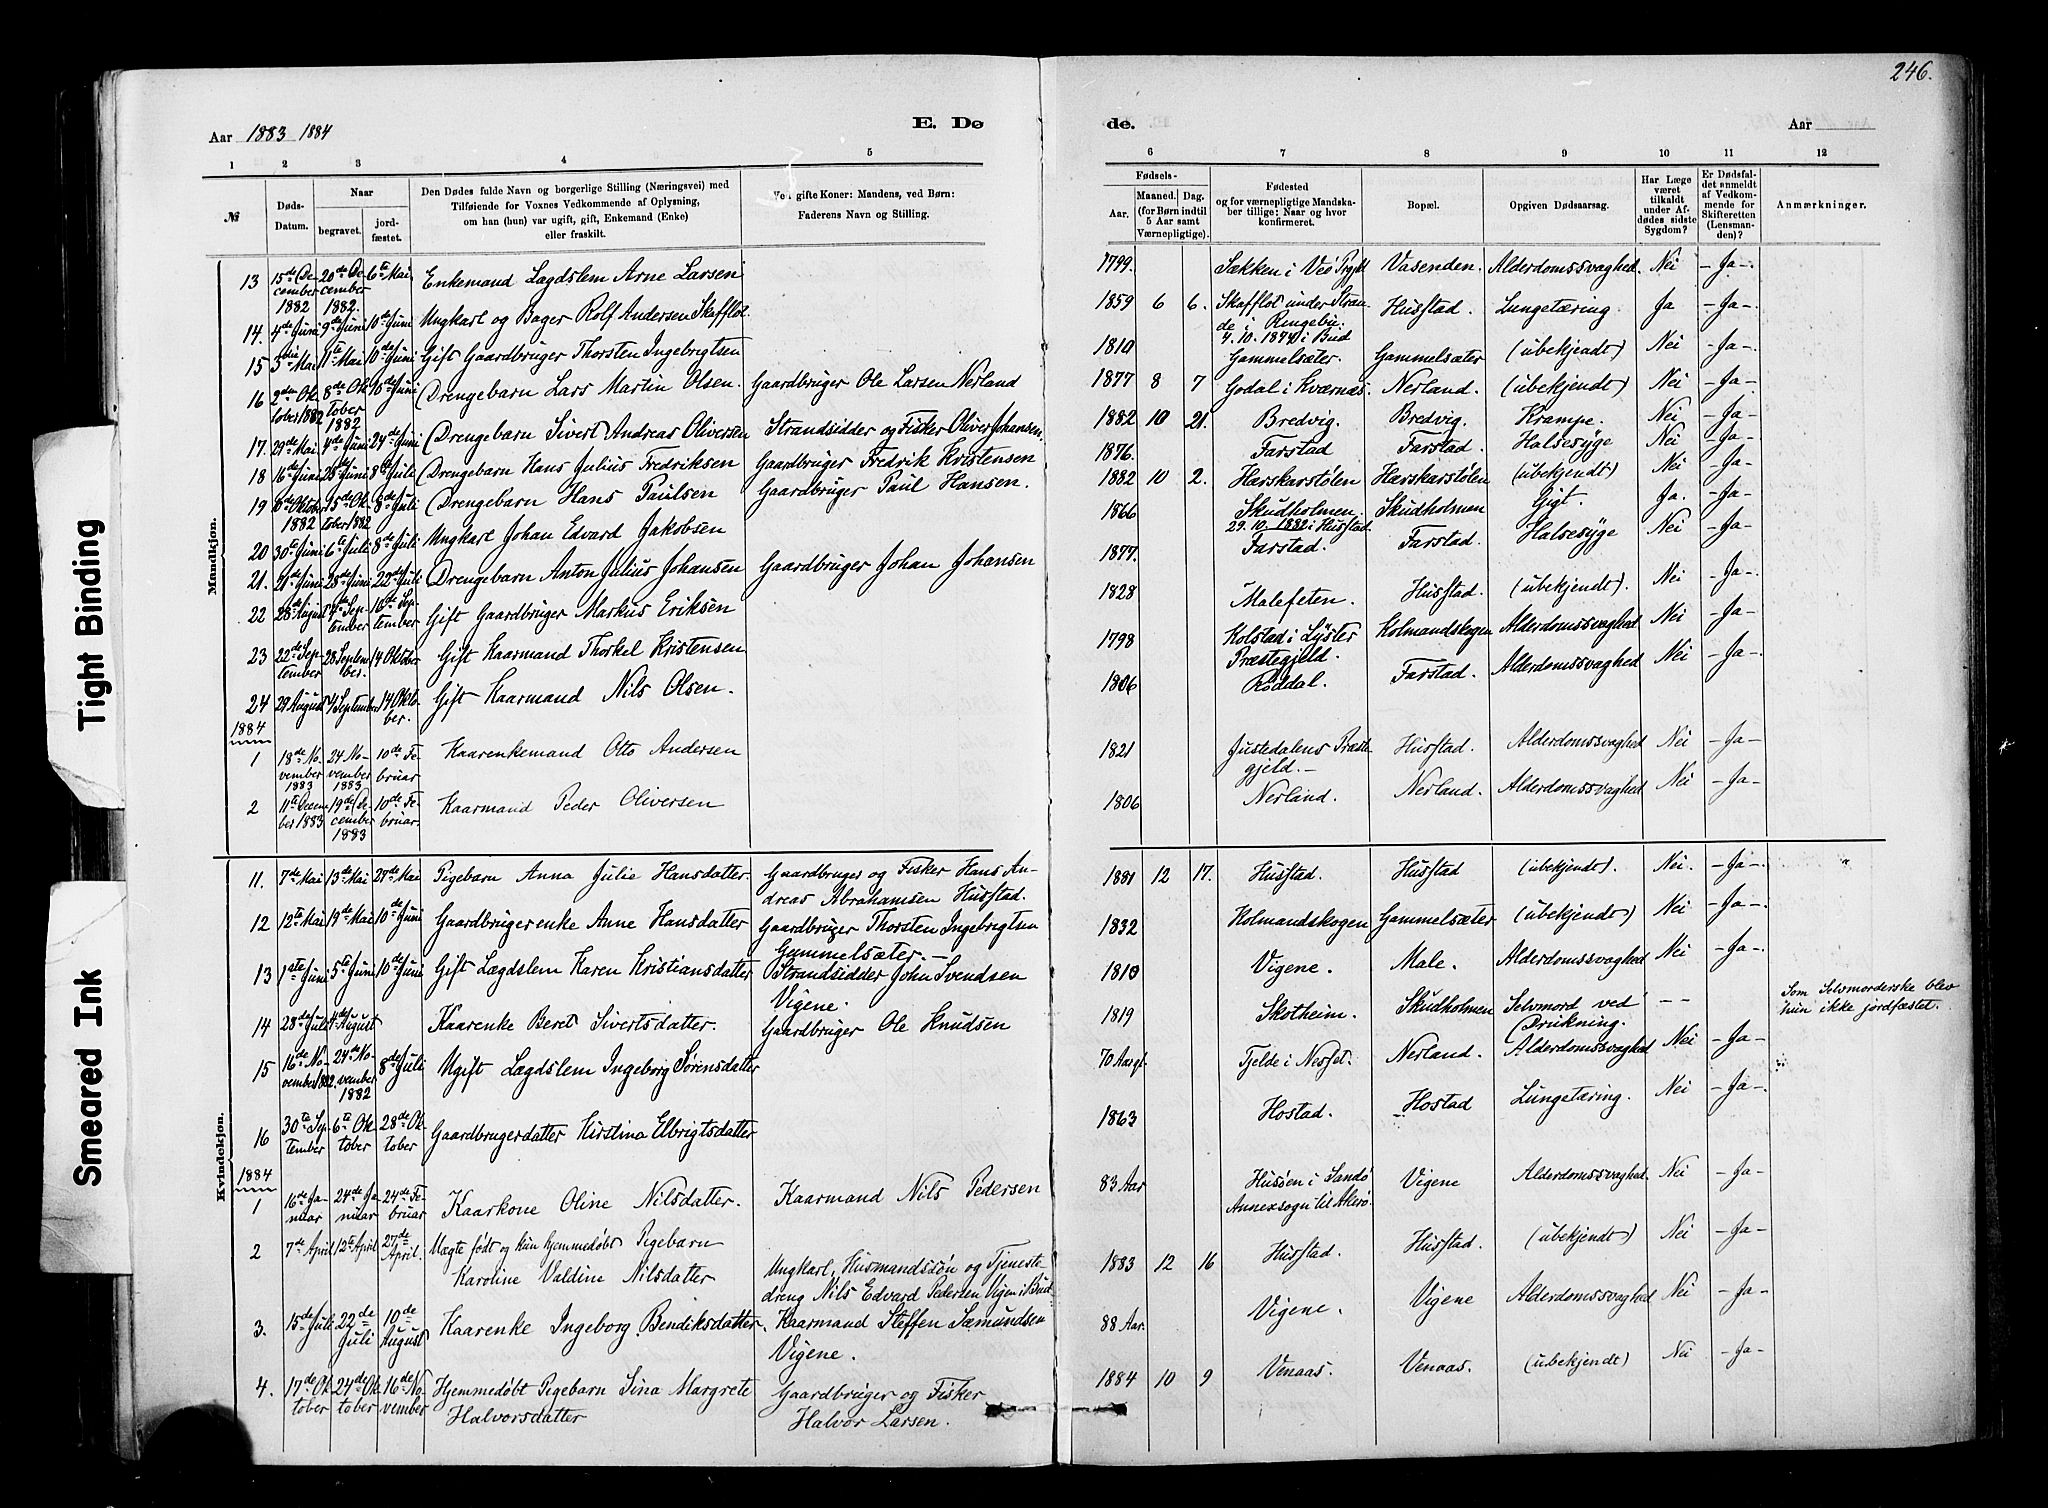 246.
Aar 1883 1884
E. Dø
de.
Aar
1 2 3 4 5
6 7 8 9 10 11 12
№
Døds-Datum.
Naar
begravet.
jord-fæstet.
Den Dødes fulde Navn og borgerlige Stilling (Næringsvei) med
Tilføiende for Voxnes Vedkommende af Oplysning,
om han (hun) var ugift, gift, Enkemand (Enke)
eller fraskilt.
Ved gifte Koner: Mandens, ved Børn:
Faderens Navn og Stilling.
Fødsels-
Aar.
Maaned. Dag.
(for Børn indtil
5 Aar samt
Værnepligtige).
Fødested
og for værnepligtige Mandska-
ber tillige: Naar og hvor
konfirmeret.
Bopæl.
Opgiven Dødsaarsag.
Har Læge
været
tilkaldt
under Af-
dødes sidste
Sygdom?
Er Dødsfal-
det anmeldt
af Vedkom-
mende for
Skifteretten
(Lensman-
den)?
Anmærkninger.
Mandkjøn.
13 15de December 1882 20de December 1882. 6te Mai Enkemand Lægdslem Arne Larsen 1799. Sækken i Veø Prgjld Vasenden. Alderdomssvaghed. Nei - Ja -.
14. 4de Juni 9de Juni 10de Juni Ungkarl og Bager Rolf Andersen Skafflot 1859 6 6. Skafflot under Strande i Ringebu. 4.10.1874 i Bud Husstad. Lungetæring. Ja - Ja -.
15 5die Mai 11te Mai 10de Juni Gift Gaardbruger Thorsten Ingebrigtsen 1810 Gammelsæter. Gammelsæter (ubekjendt) Nei - Ja -.
16 2den Oktober 1882 8de Oktober 1882 10de Juni Drengebarn Lars Martin Olsen. Gaardbruger Ole Larsen Nerland 1877 8 7 Godal i Kværnæs. Nerland. (ubekjendt) Nei - Ja -.
17. 29de Mai 4de Juni 24de Juni Drengebarn Sivert Andreas Oliversen Strandsidder og Fisker Oliver Johansen. 1882 10 21. Bredvig. Bredvig. Krampe. Nei - Ja -.
18 16de Juni 25de Juni 8de Juli Drengebarn Hans Julius Fredriksen Gaardbruger Fredrik Kristensen 1876. Farstad Farstad. Halsesyge Nei - Ja -.
19 8de Oktober 1882 15de Oktober 1882 8de Juli Drengebarn Hans Paulsen Gaardbruger Paul Hansen. 1882 10 2. Hærskarstølen Hærskarstølen (ubekjendt) Nei - Ja -.
20 30te Juni 6te Juli 8de Juli Ungkarl Johan Edvard Jakobsen 1866 Skudholmen. 29.10.1882 i Husstad. Skudholmen Gigt. Ja. - Ja -.
21. 21de Juni 28de Juni 22de Juli Drengebarn Anton Julius Johansen Gaardbruger Johan Johansen 1877. Farstad. Farstad. Halsesyge Nei - Ja -.
22 28de August 4de September 16de September Gift Gaardbruger Markus Eriksen 1828 Malefeten. Husstad. (ubekjendt). Nei - Ja -.
23 22de September 28 September. 14 Oktober Gift Kaarmand Thorkel Kristensen 1798 Kolstad i Lyster Præstegjeld. Kolmandskogen Alderdomssvaghed Nei - Ja -.
24 29 August 4 September 14 Oktober. Gift Kaarmand Nils Olsen. 1806 Røddal. Farstad. Alderdomssvaghed Nei - Ja -.
1884
1 18de November 1883 24 November 1883 10de Februar Kaarenkemand Otto Andersen 1821 Justedalens Præstegjeld. - Husstad. Alderdomssvaghed Nei - Ja -.
2 11te December 1883 19de December 1883 10de Februar. Kaarmand Peder Oliversen 1806 Nerland. Nerland. Alderdomssvaghed Nei - Ja -.
Kvindekjøn.
11. 7de Mai 13de Mai 27de Mai Pigebarn Anna Julie Hansdatter. Gaardbruger og Fisker Hans Andreas Abrahamsen Husstad. 1881 12 17. Husstad. Husstad (ubekjendt). Nei. - Ja -.
12 12te Mai 19de Mai 10de Juni Gaardbrugerenke Anne Hansdatter Gaardbruger Thorsten Ingebrigtsen Gammelsæter. - 1832 Kolmandskogen Gammelsæter (ubekjendt) Nei - Ja -.
13 1ste Juni 5te Juni 10de Juni Gift Lægdslem Karen Kristiansdatter Strandsidder John Svendsen Vigene. 1810 Vigene. Male. Alderdomssvaghed Nei - Ja -.
14 28de Juli 4de August Kaarenke Beret Sivertsdatter. Gaardbruger Ole Knudsen 1819 Skotheim. Skudholmen Selvmord ved Drukning. - - - Ja -. Som Selvmorderske blev hun ikke jordfæstet.
15 16de November 1882. 24de November 1882 8de Juli Ugift Lægdslem Ingeborg Sørensdatter 70 Aar gl. Tjelde i Nesset. Nerland. Alderdomssvaghed Nei - Ja -.
16 30te September 6te Oktober 28de Oktober Gaardbrugerdatter Kirstina Elbrigtsdatter 1863 Hostad. Hostad Lungetæring. Nei - Ja -.
1884
1 16de Januar 24de Januar 24de Februar Kaarkone Oline Nilsdatter. Kaarmand Nils Pedersen 83 Aar Husøen i Sandø Annexsogn til Akerø. Vigene Alderdomssvaghed. Nei - Ja -
2 7de April 12te April 27de April. Uægte født og kun hjemmedøbt Pigebarn Karoline Valdine Nilsdatter Ungkarl, Husmandssøn og Tjenestedreng Nils Edvard Pedersen Vigen i Bud 1883 12 16 Husstad. Husstad. (ubekjendt) Nei - Ja -
3. 15de Juli 22de Juli 10de August Kaarenke Ingeborg Bendiksdatter. Kaarmand Steffen Sæmundsen Vigene. 88 Aar. Vigene. Vigene Alderdomssvaghed Nei - Ja -
4. 17de Oktober 24de Oktober 16de November Hjemmedøbt Pigebarn Sina Margrete Halvorsdatter Gaardbruger og Fisker Halvor Larsen. 1884 10 9 Venaas. Venaas. (ubekjendt) Nei - Ja -
Tight Binding
Smeared Ink